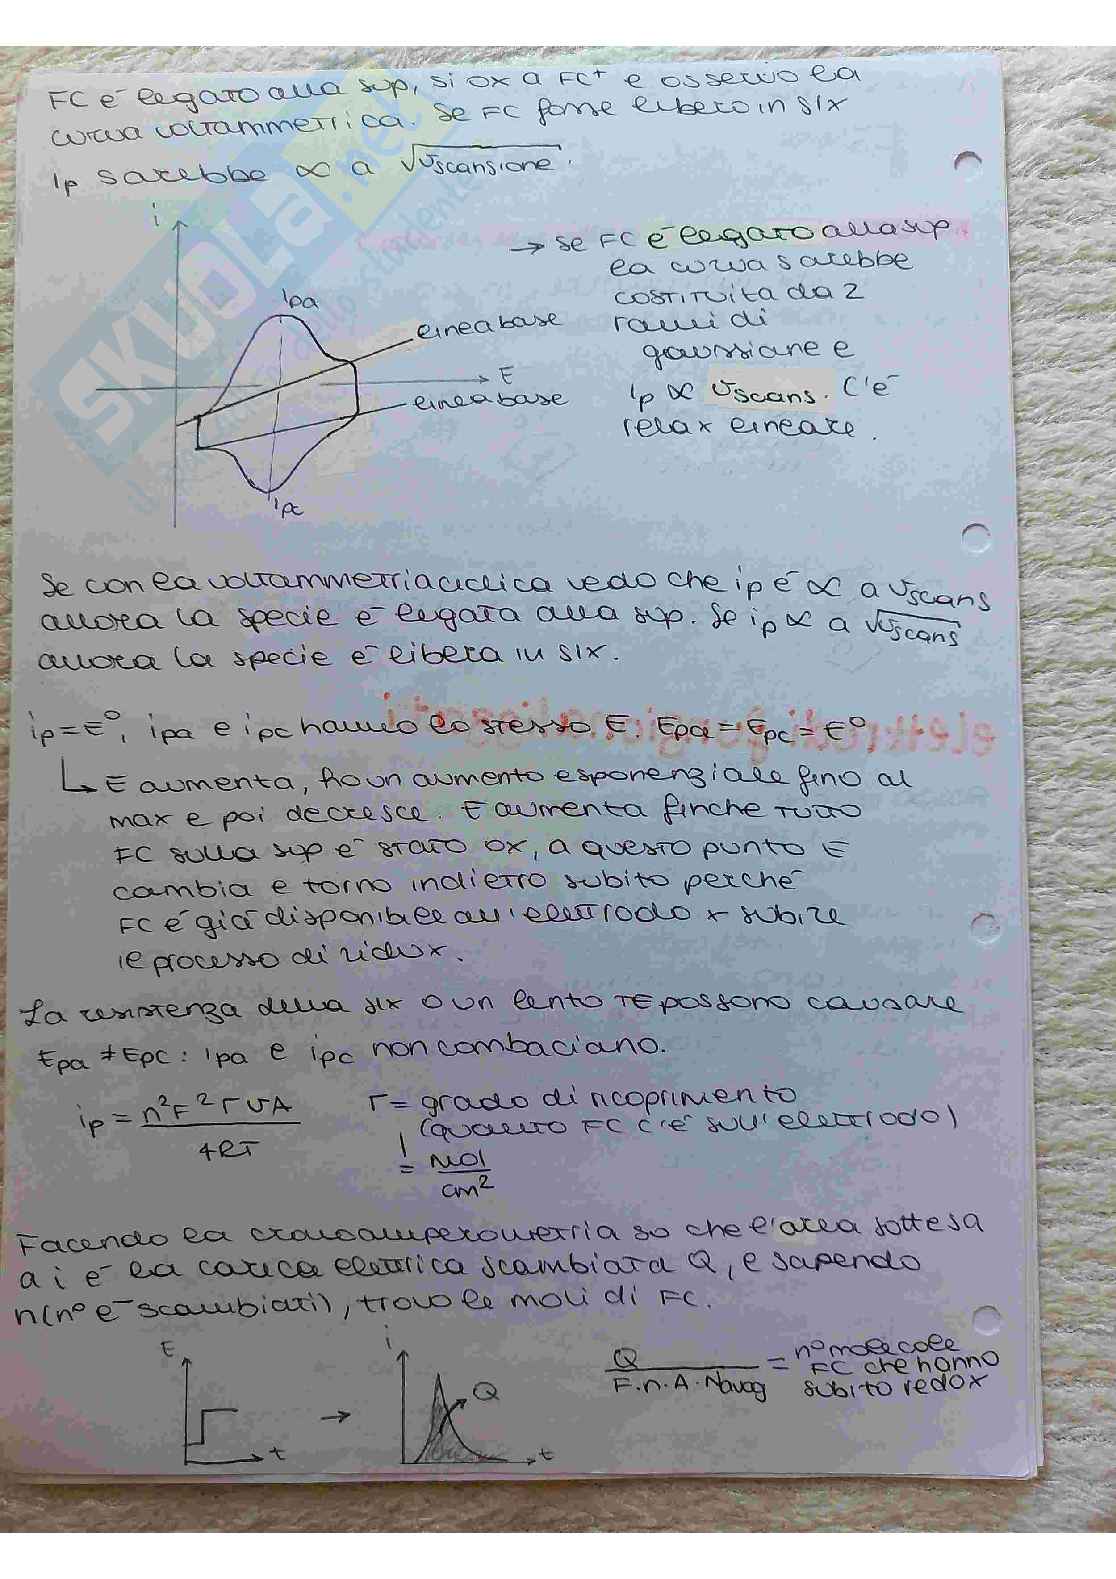 FC è legato alla sup, si ox a FC⁺ e osservo la
curva voltammetrica. Se FC fosse libero in slx
ip sarebbe ∝ a √vscansione.
i
→ se FC è legato alla sup.
la curva sarebbe
costituita da 2
rami di
gaussiane e
ip ∝ vscans. C'è
relax lineare.
ipa
linea base
E
linea base
ipc
SKUOLA.net
Se con la voltammetria ciclica vedo che ip è ∝ a vscans
allora la specie è legata alla sup. Se ip ∝ a √vscans
allora la specie è libera in slx.
ip = E°, ipa e ipc hanno lo stesso E. Epa = Epc = E°
↳ E aumenta, ho un aumento esponenziale fino al
max e poi decresce. E aumenta finche tutto
FC sulla sup è stato ox, a questo punto E
cambia e torno indietro subito perché
FC è già disponibile all'elettrodo x subire
il processo di ridux.
La resistenza della slx o un lento TE possono causare
Epa ≠ Epc : ipa e ipc non combaciano.
ip = n²F²ΓvA / 4RT
Γ = grado di ricoprimento
(quanto FC c'è sull'elettrodo)
= mol / cm²
Facendo la cronoamperometria so che l'area sottesa
a i è la carica elettrica scambiata Q, e sapendo
n (n° e⁻ scambiati), trovo le moli di FC.
E
t
→
i
Q
t
Q / F.n.A.Navog = n° molecole FC che hanno subito redox